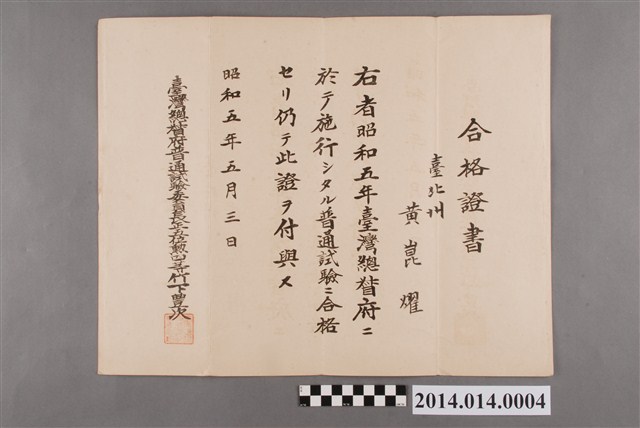 合格證書
臺北州
黃崑燿
右者昭和五年臺灣總督府ニ
於テ施行シタル普通試驗ニ合格
セリ仍テ此證ヲ付與ス
昭和五年五月三日
臺灣總督府普通試驗委員長正五位勳四等竹下豐次
2014.014.0004